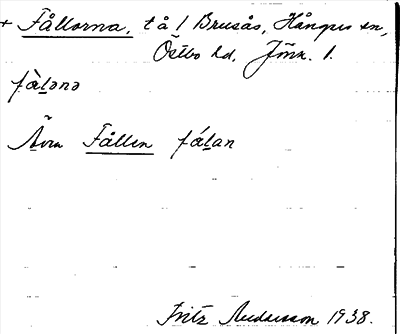 + Fållorna, t å / Brusås, Hånger sn,
Östbo hd, Jönk. l.
fàlənə
Även Fållen fálan
Fritz Andersson 1938.